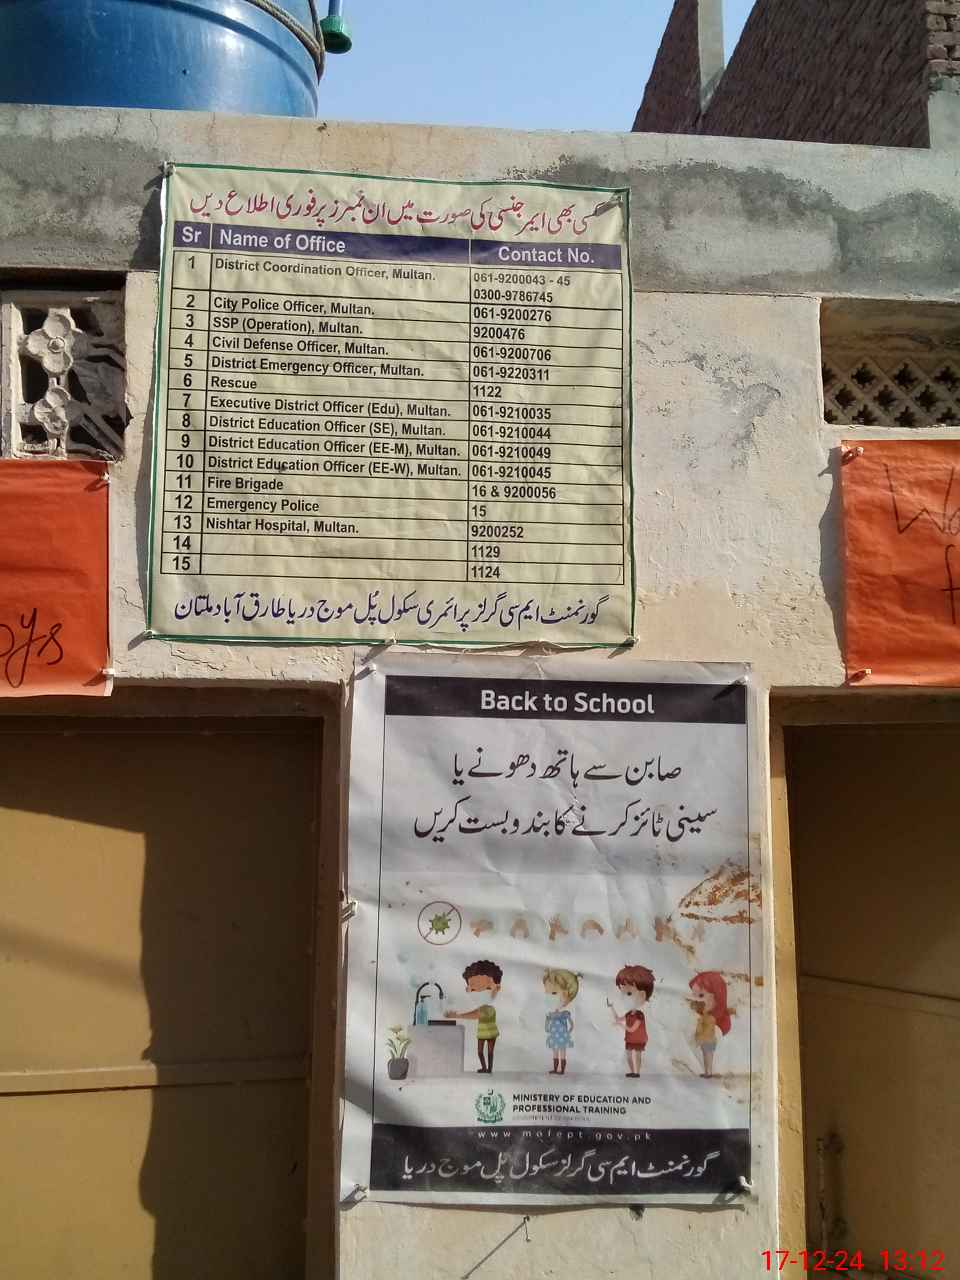 کسی بھی ایمرجنسی کی صورت میں ان نمبرز پر فوری اطلاع دیں
Sr Name of Office Contact No.
1 District Coordination Officer, Multan. 061-9200043 - 45
0300-9786745
2 City Police Officer, Multan. 061-9200276
3 SSP (Operation), Multan. 9200476
4 Civil Defense Officer, Multan. 061-9200706
5 District Emergency Officer, Multan. 061-9220311
6 Rescue 1122
7 Executive District Officer (Edu), Multan. 061-9210035
8 District Education Officer (SE), Multan. 061-9210044
9 District Education Officer (EE-M), Multan. 061-9210049
10 District Education Officer (EE-W), Multan. 061-9210045
11 Fire Brigade 16 & 9200056
12 Emergency Police 15
13 Nishtar Hospital, Multan. 9200252
14 1129
15 1124
گورنمنٹ ایم سی گرلز پرائمری سکول پُل موج دریا طارق آباد ملتان
Back to School
صابن سے ہاتھ دھونے یا
سینی ٹائز کرنے کا بندوبست کریں
MINISTRY OF EDUCATION AND
PROFESSIONAL TRAINING
www.mofept.gov.pk
گورنمنٹ ایم سی گرلز سکول پُل موج دریا
17-12-24 13:12